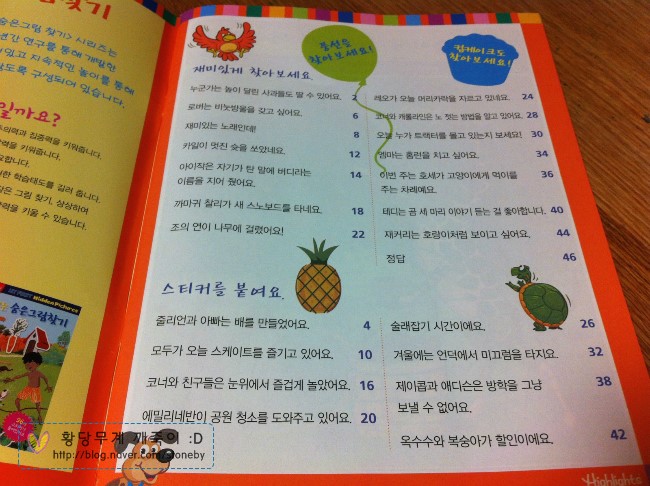 찾기
숨은그림 찾기> 시리즈는
연구를 통해 개발한
있고 지속적인 놀이를 통해
있도록 구성되어 있습니다.
일까요?
집중력을 키워줍니다.
력을 키워줍니다.
학습태도를 길러 줍니다.
그림 찾기, 상상하여
력을 키울 수 있습니다.
Hidden Pictures
숨은그림찾기
풍선을
찾아보세요!
컵케이크도
찾아보세요!
재미있게 찾아보세요.
누군가는 높이 달린 사과들도 딸 수 있어요. 2
로버는 비눗방울을 갖고 싶어요. 6
재미있는 노래인데! 8
카일이 멋진 슛을 쏘았네요. 12
아이작은 자기가 탄 말에 버디라는 14
이름을 지어 줬어요.
까마귀 찰리가 새 스노보드를 타네요. 18
조의 연이 나무에 걸렸어요! 22
레오가 오늘 머리카락을 자르고 있네요. 24
코너와 캐롤라인은 노 젓는 방법을 알고 있어요. 28
오늘 누가 트랙터를 몰고 있는지 보세요! 30
엠마는 홈런을 치고 싶어요. 34
이번 주는 호세가 고양이에게 먹이를 36
주는 차례예요.
테디는 곰 세 마리 이야기 듣는 걸 좋아합니다. 40
재커리는 호랑이처럼 보이고 싶어요. 44
정답 46
스티커를 붙여요.
줄리언과 아빠는 배를 만들었어요. 4
모두가 오늘 스케이트를 즐기고 있어요. 10
코너와 친구들은 눈위에서 즐겁게 놀았어요. 16
에밀리네반이 공원 청소를 도와주고 있어요. 20
술래잡기 시간이에요. 26
겨울에는 언덕에서 미끄럼을 타지요. 32
제이콥과 애디슨은 방학을 그냥 38
보낼 수 없어요.
옥수수와 복숭아가 할인이에요. 42
황당무계 깨죽이 :D
Highlights